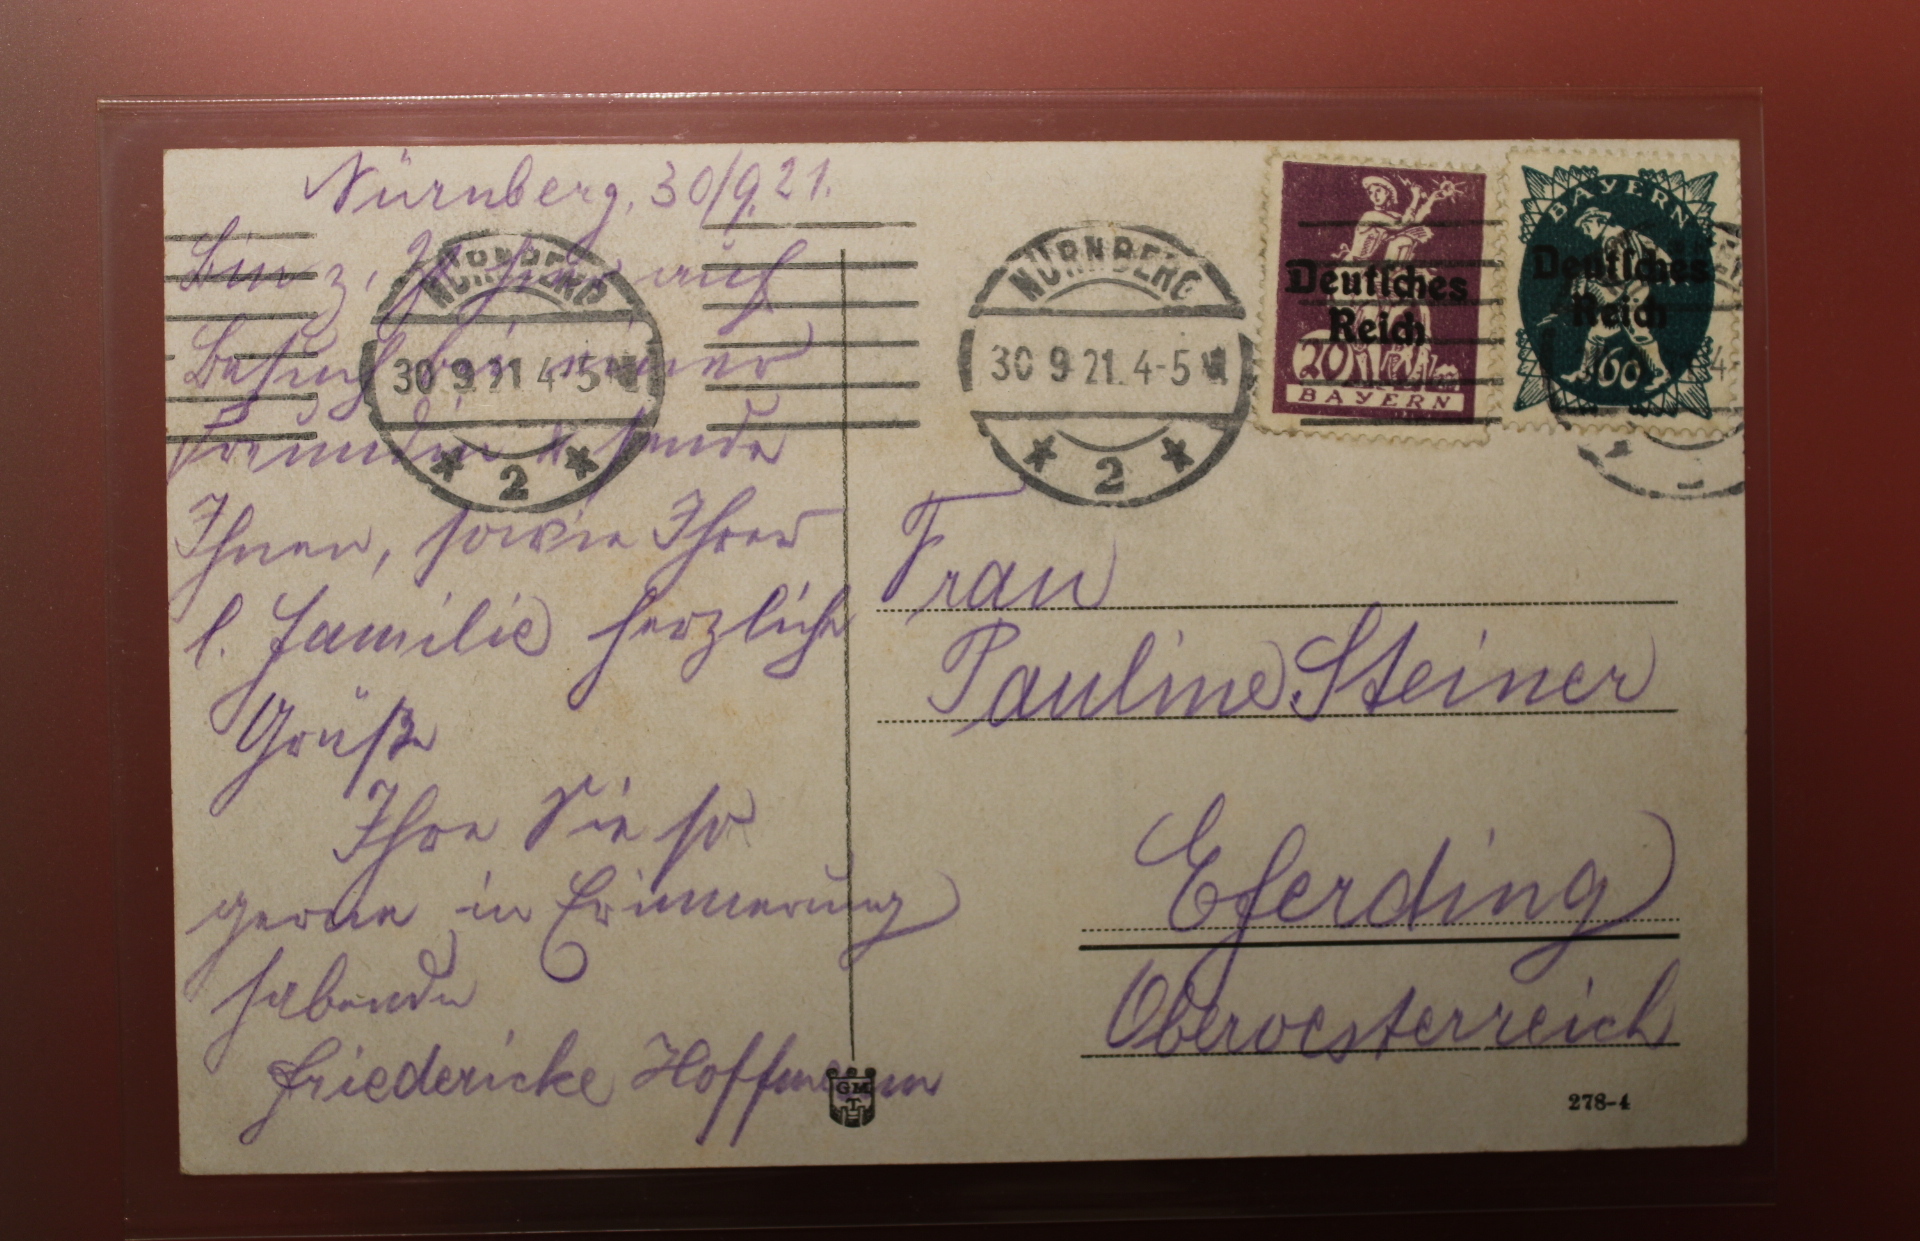 Nürnberg, 30/9. 21.
Bin z. Z. hier auf
Besuch bei einer
Freundin & sende
Ihnen, sowie Ihrer
l. Familie herzliche
Grüße
Ihre Sie so
gerne in Erinnerung
habende
Friedericke Hoffmann
NÜRNBERG
30 9 21 4-5 N
* 2 *
NÜRNBERG
30 9 21. 4-5 N
* 2 *
Deutsches
Reich
20
BAYERN
BAYERN
Deutsches
Reich
60
Frau
Pauline Steiner
Eferding
Oberoesterreich
GM
T
278-4